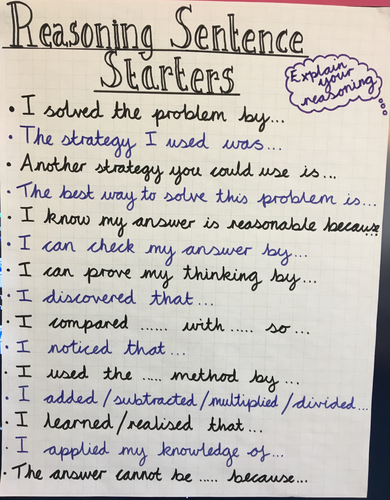 Reasoning Sentence
Starters
Explain
your
reasoning
• I solved the problem by...
• The strategy I used was...
• Another strategy you could use is...
• The best way to solve this problem is...
• I know my answer is reasonable because
• I can check my answer by...
• I can prove my thinking by...
• I discovered that...
• I compared ...... with ..... so...
• I noticed that...
• I used the ..... method by...
• I added/subtracted/multiplied/divided...
• I learned/realised that...
• I applied my knowledge of...
• The answer cannot be ..... because...